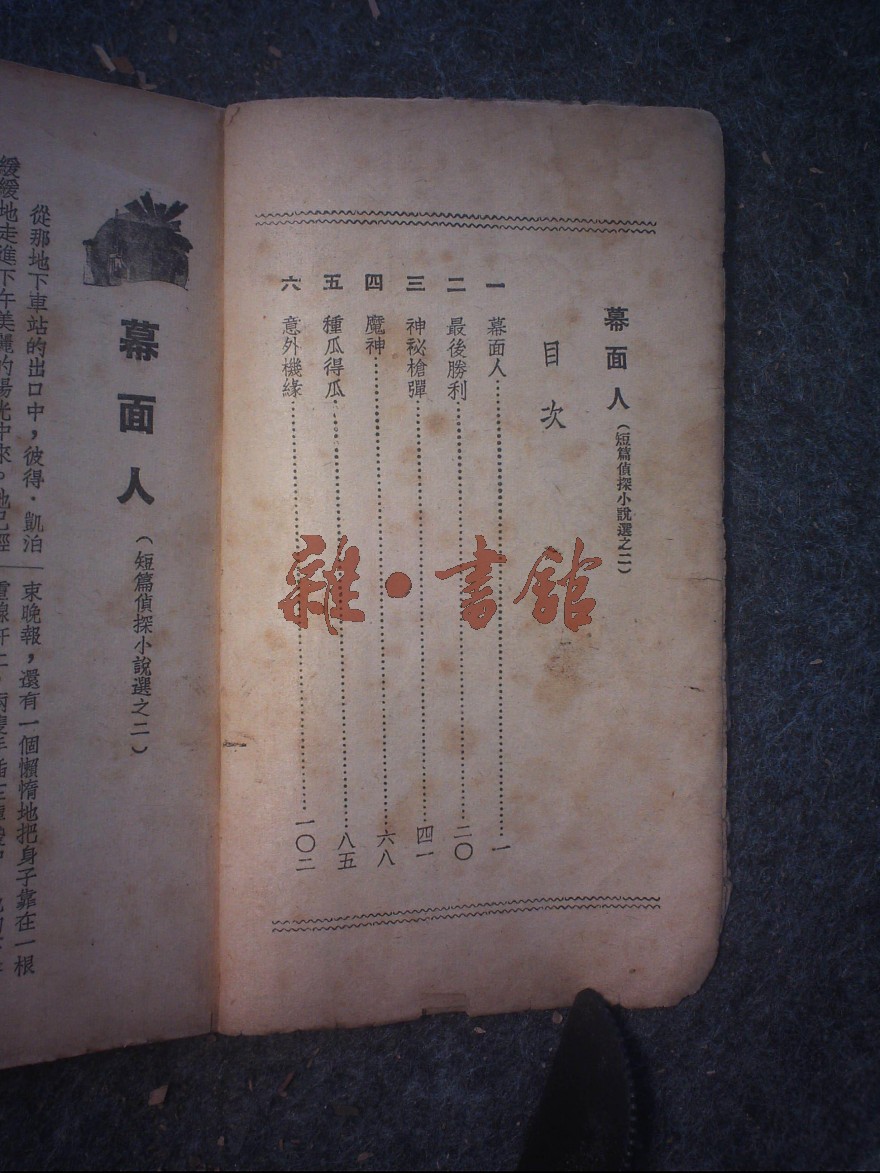 幕面人(短篇偵探小說選之二)
目次
一 幕面人 一
二 最後勝利 二〇
三 神祕槍彈 四一
四 魔神 六八
五 種瓜得瓜 八五
六 意外機緣 一〇二
雜·書館
幕面人
(短篇偵探小說選之二)
從那地下車站的出口中,彼得·凱泊
緩緩地走進下午美麗的陽光中來。他已經
束晚報,還有一個懶惰地把身子靠在一根